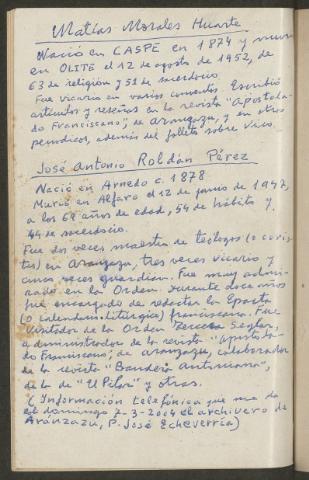 Matías Morales Huarte
Nació en CASPE en 1874 y murió
en OLITE el 12 de agosto de 1952, de
63 de religión y 51 de sacerdocio.
Fue vicario en varios conventos. Escribió
artículos y reseñas en la revista "Apostola-
do Franciscano", de Aranzazu, y en otros
periódicos, además del folleto sobre Vico.
José Antonio Roldán Pérez
Nació en Arnedo c. 1878
Murió en Alfaro el 12 de junio de 1947,
a los 69 años de edad, 54 de hábito y
44 de sacerdocio.
Fue dos veces maestro de teólogos (o coris-
tas) en Aranzazu, tres veces vicario y
cinco veces guardián. Fue muy admi-
rado en la Orden. Durante doce años
fue encargado de redactar la Epacta
(o calendario litúrgico) franciscana. Fue
Visitador de la Orden Tercera Seglar,
administrador de la revista "Apostola-
do Franciscano", de Aranzazu, colaborador
de la revista "Bandera Antoniana",
de la de "El Pilar" y otras.
(Información telefónica que me da
el domingo 7-3-2004 el archivero de
Aránzazu, P. José Echeverría)